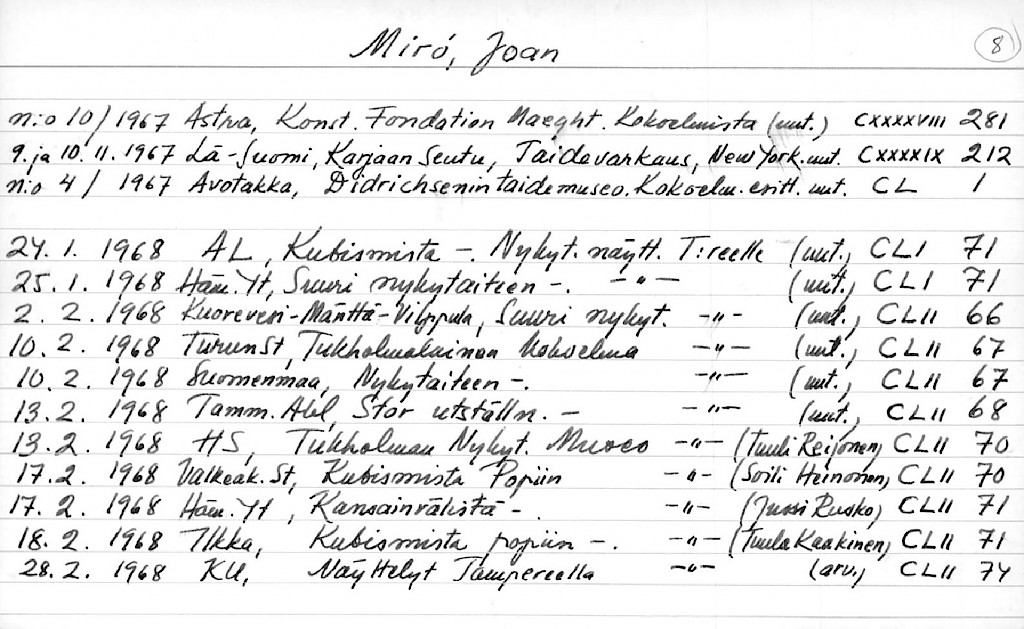 8
Miró, Joan
n:o 10/1967 Astra, Konst. Fondation Maeght. Kokoelmista (uut.) CXXXXVIII 281
9. ja 10.11.1967 Lä-Suomi, Karjaan Seutu, Taidevarkaus, New York. uut. CXXXXIX 212
n:o 4/ 1967 Avotakka, Didrichsenin taidemuseo. Kokoelm. esitt. uut. CL 1
24.1. 1968 AL, Kubismista -. Nykyt. näytt. T:reelle (uut., CLI 71
25.1. 1968 Häm. Yt, Suuri nykytaiteen -. -"- (uut., CLI 71
2. 2. 1968 Kuorevesi-Mänttä-Vilppula, Suuri nykyt. -"- (uut., CLII 66
10.2. 1968 Turun St, Tukholmalainen kokoelma -"- (uut., CLII 67
10.2. 1968 Suomenmaa, Nykytaiteen -. -"- (uut., CLII 67
13.2. 1968 Tamm. Abl, Stor utställn. - -"- (uut., CLII 68
13.2. 1968 HS, Tukholman Nykyt. Museo -"- (Tuuli Reijonen, CLII 70
17.2. 1968 Valkeak. St, Kubismista Popiin -"- (Soili Heinonen, CLII 70
17. 2. 1968 Häm. Yt, Kansainvälistä -. -"- (Jussi Rusko, CLII 71
18.2. 1968 Ilkka, Kubismista popiin -. -"- (Tuula Kaakinen, CLII 71
28.2. 1968 KU, Näyttelyt Tampereella -"- (arv., CLII 74